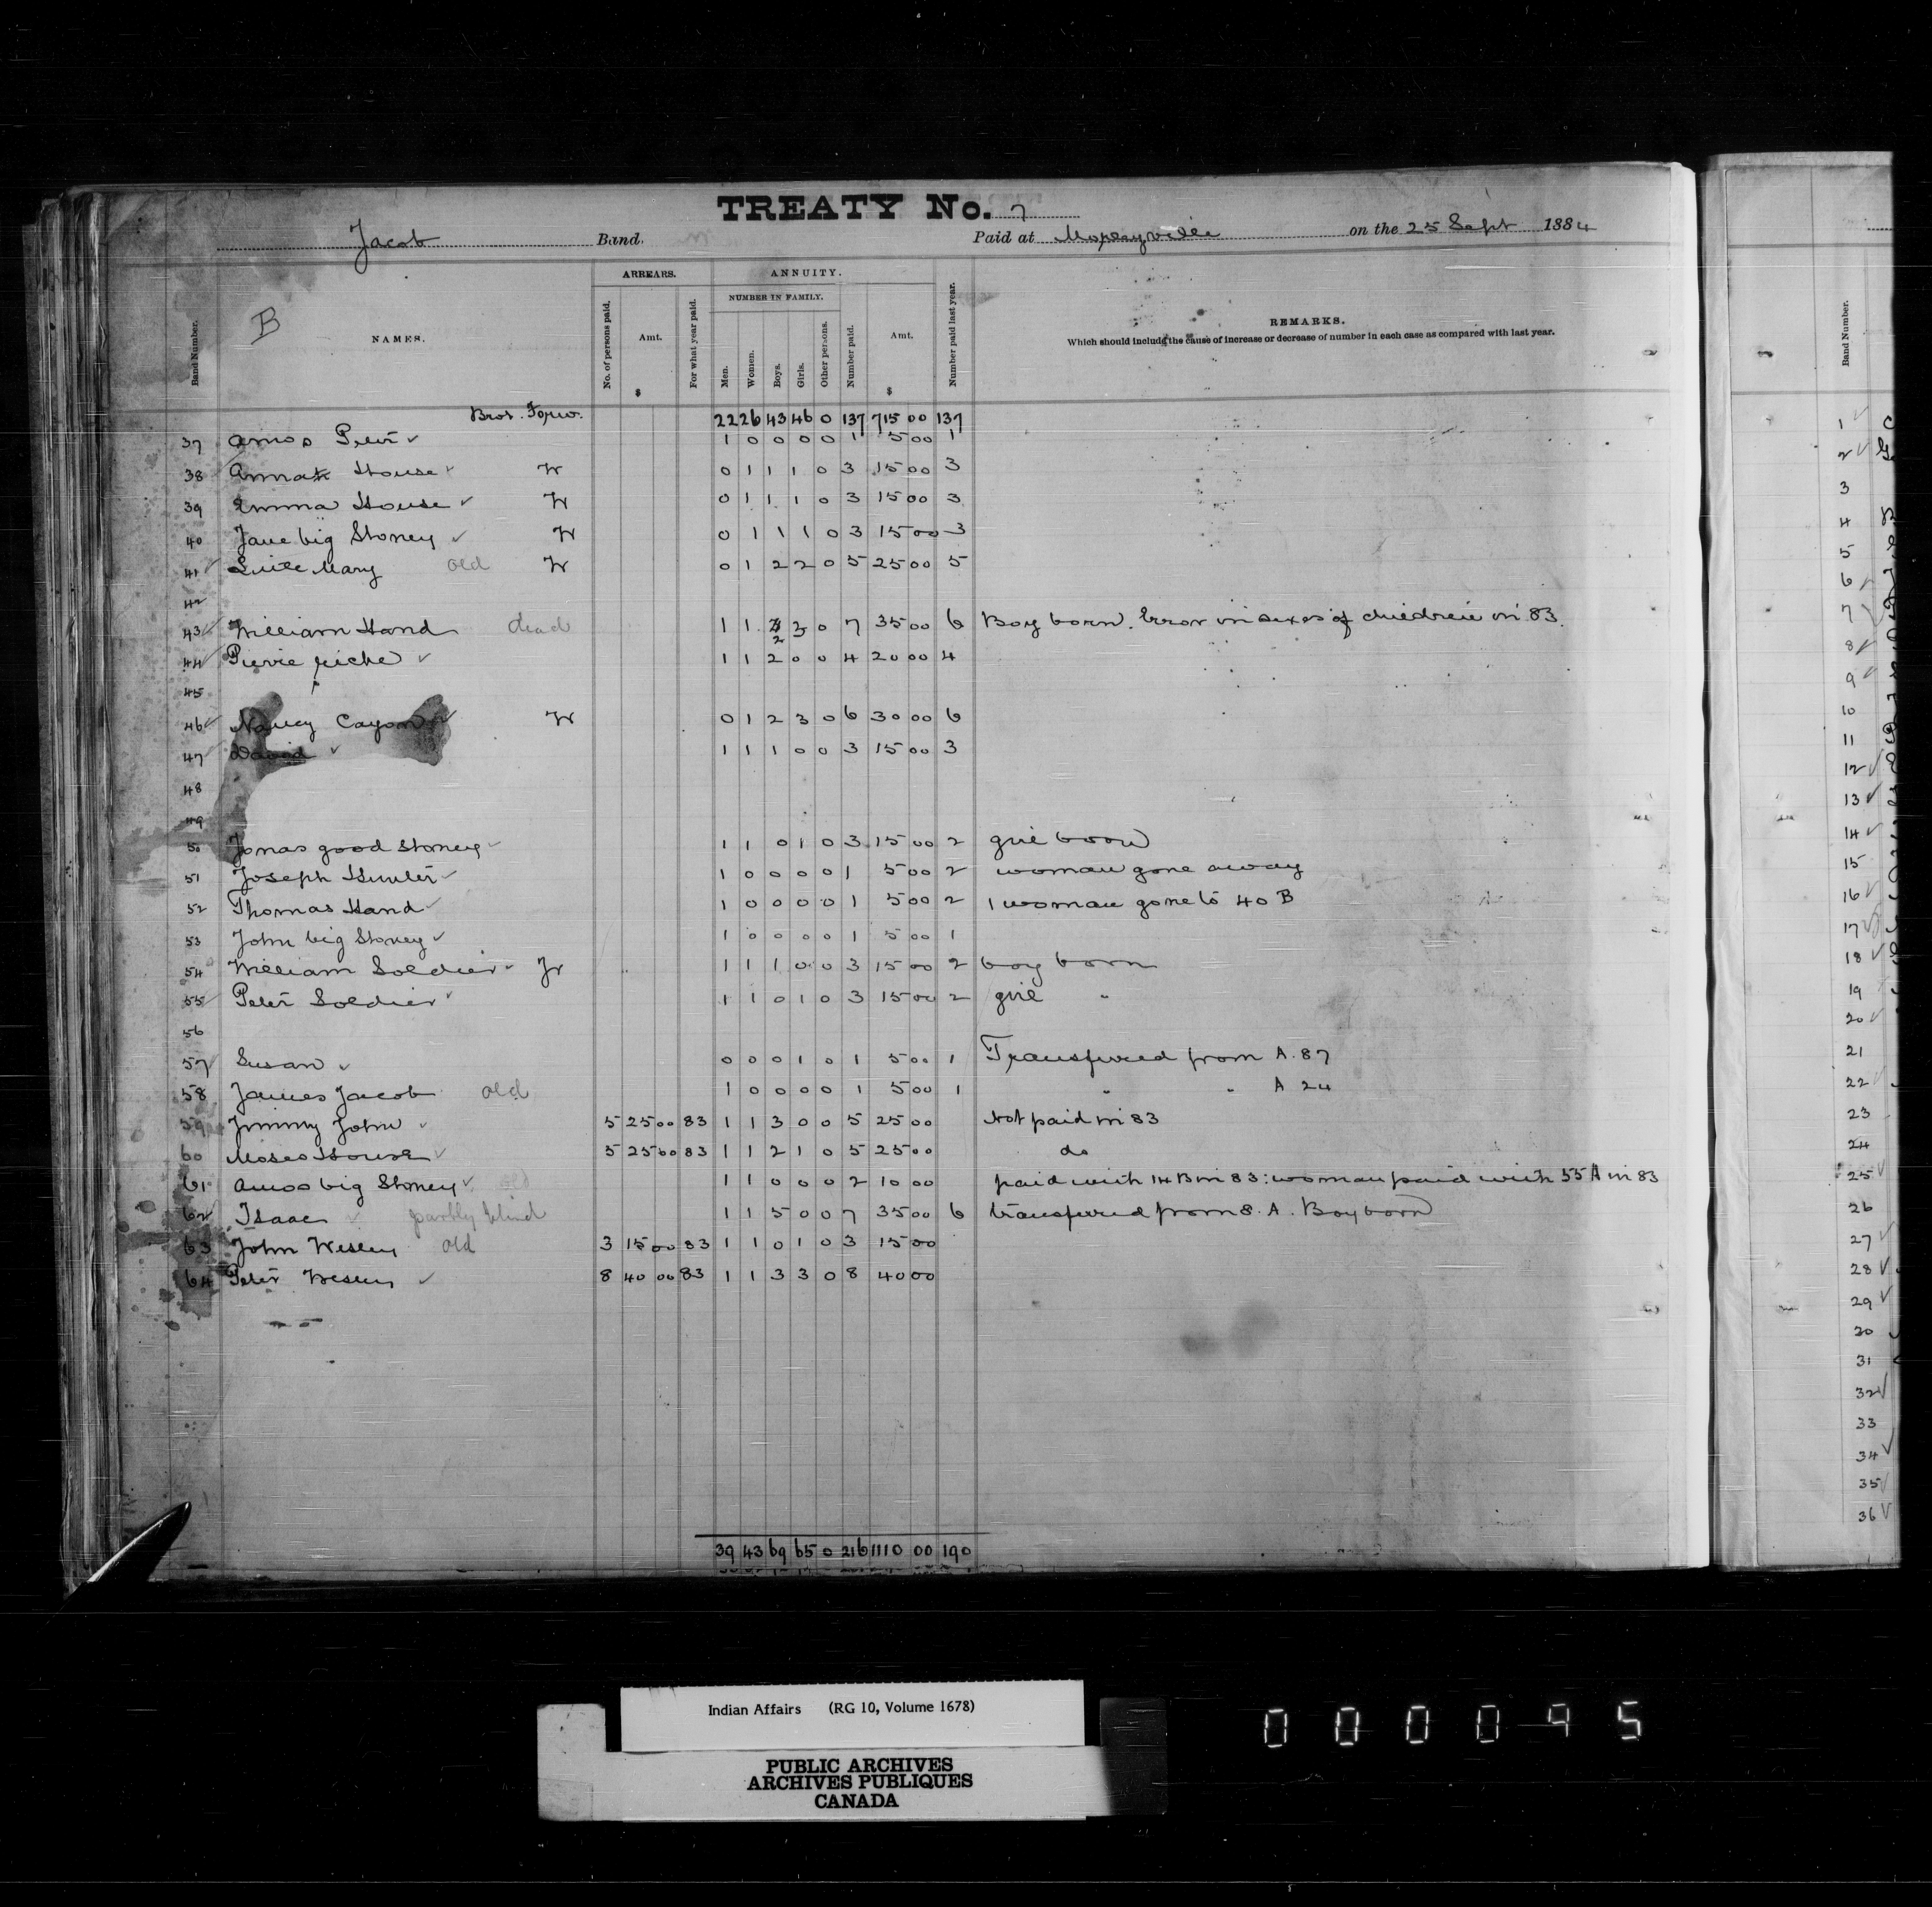 TREATY No. 7
Jacob Band. Paid at Morleyville on the 25 Sept 1884
B
Band Number. NAMES. ARREARS. No. of persons paid. Amt. $ For what year paid. ANNUITY. NUMBER IN FAMILY. Men. Women. Boys. Girls. Other persons. Number paid. Amt. $ Number paid last year. REMARKS.
Which should include the cause of increase or decrease of number in each case as compared with last year.
Band Number.
Brot. Forw. 22 26 43 46 0 137 715 00 137
37 Amos Peter ✓ 1 0 0 0 0 1 5 00 1
38 Annah House ✓ W 0 1 1 1 0 3 15 00 3
39 Emma House ✓ W 0 1 1 1 0 3 15 00 3
40 Jane big Stoney ✓ W 0 1 1 1 0 3 15 00 3
41 ✓ Little Mary old W 0 1 2 2 0 5 25 00 5
42
43 ✓ William Hand dead 1 1 2 3 0 7 35 00 6 Boy born. Error in sexes of children in 83.
44 Pierre ✓ 1 1 2 0 0 4 20 00 4
45
46 ✓ Nancy Cayon ✓ W 0 1 2 3 0 6 30 00 6
47 ✓ David ✓ 1 1 1 0 0 3 15 00 3
48
49
50 Jonas good Stoney ✓ 1 1 0 1 0 3 15 00 2 girl born
51 Joseph Hunter ✓ 1 0 0 0 0 1 5 00 2 woman gone away
52 Thomas Hand ✓ 1 0 0 0 0 1 5 00 2 1 woman gone to 40 B
53 John big Stoney ✓ 1 0 0 0 0 1 5 00 1
54 William Soldier Jr 1 1 1 0 0 3 15 00 2 boy born
55 Peter Soldier ✓ 1 1 0 1 0 3 15 00 2 girl "
56
57 ✓ Susan ✓ 0 0 0 1 0 1 5 00 1 Transferred from A. 87
58 James Jacob old 1 0 0 0 0 1 5 00 1 " " A 24
59 Jimmy John ✓ 5 25 00 83 1 1 3 0 0 5 25 00 Not paid in 83
60 Moses House ✓ 5 25 00 83 1 1 2 1 0 5 25 00 do
61 Amos big Stoney ✓ old 1 1 0 0 0 2 10 00 paid with 14 B in 83: woman paid with 55 A in 83
62 Isaac ✓ partly blind 1 1 5 0 0 7 35 00 6 transferred from 8. A. Boy born
63 John Wesley old 3 15 00 83 1 1 0 1 0 3 15 00
64 Peter Wesley ✓ 8 40 00 83 1 1 3 3 0 8 40 00
39 43 69 65 0 216 1110 00 190
1 ✓
2 ✓
3
4
5
6
7
8 ✓
9 ✓
10
11
12 ✓
13 ✓
14 ✓
15
16 ✓
17 ✓
18 ✓
19
20 ✓
21
22 ✓
23
24
25 ✓
26
27 ✓
28 ✓
29 ✓
30
31
32 ✓
33
34 ✓
35
36 ✓
Indian Affairs (RG 10, Volume 1678)
PUBLIC ARCHIVES
ARCHIVES PUBLIQUES
CANADA
000095